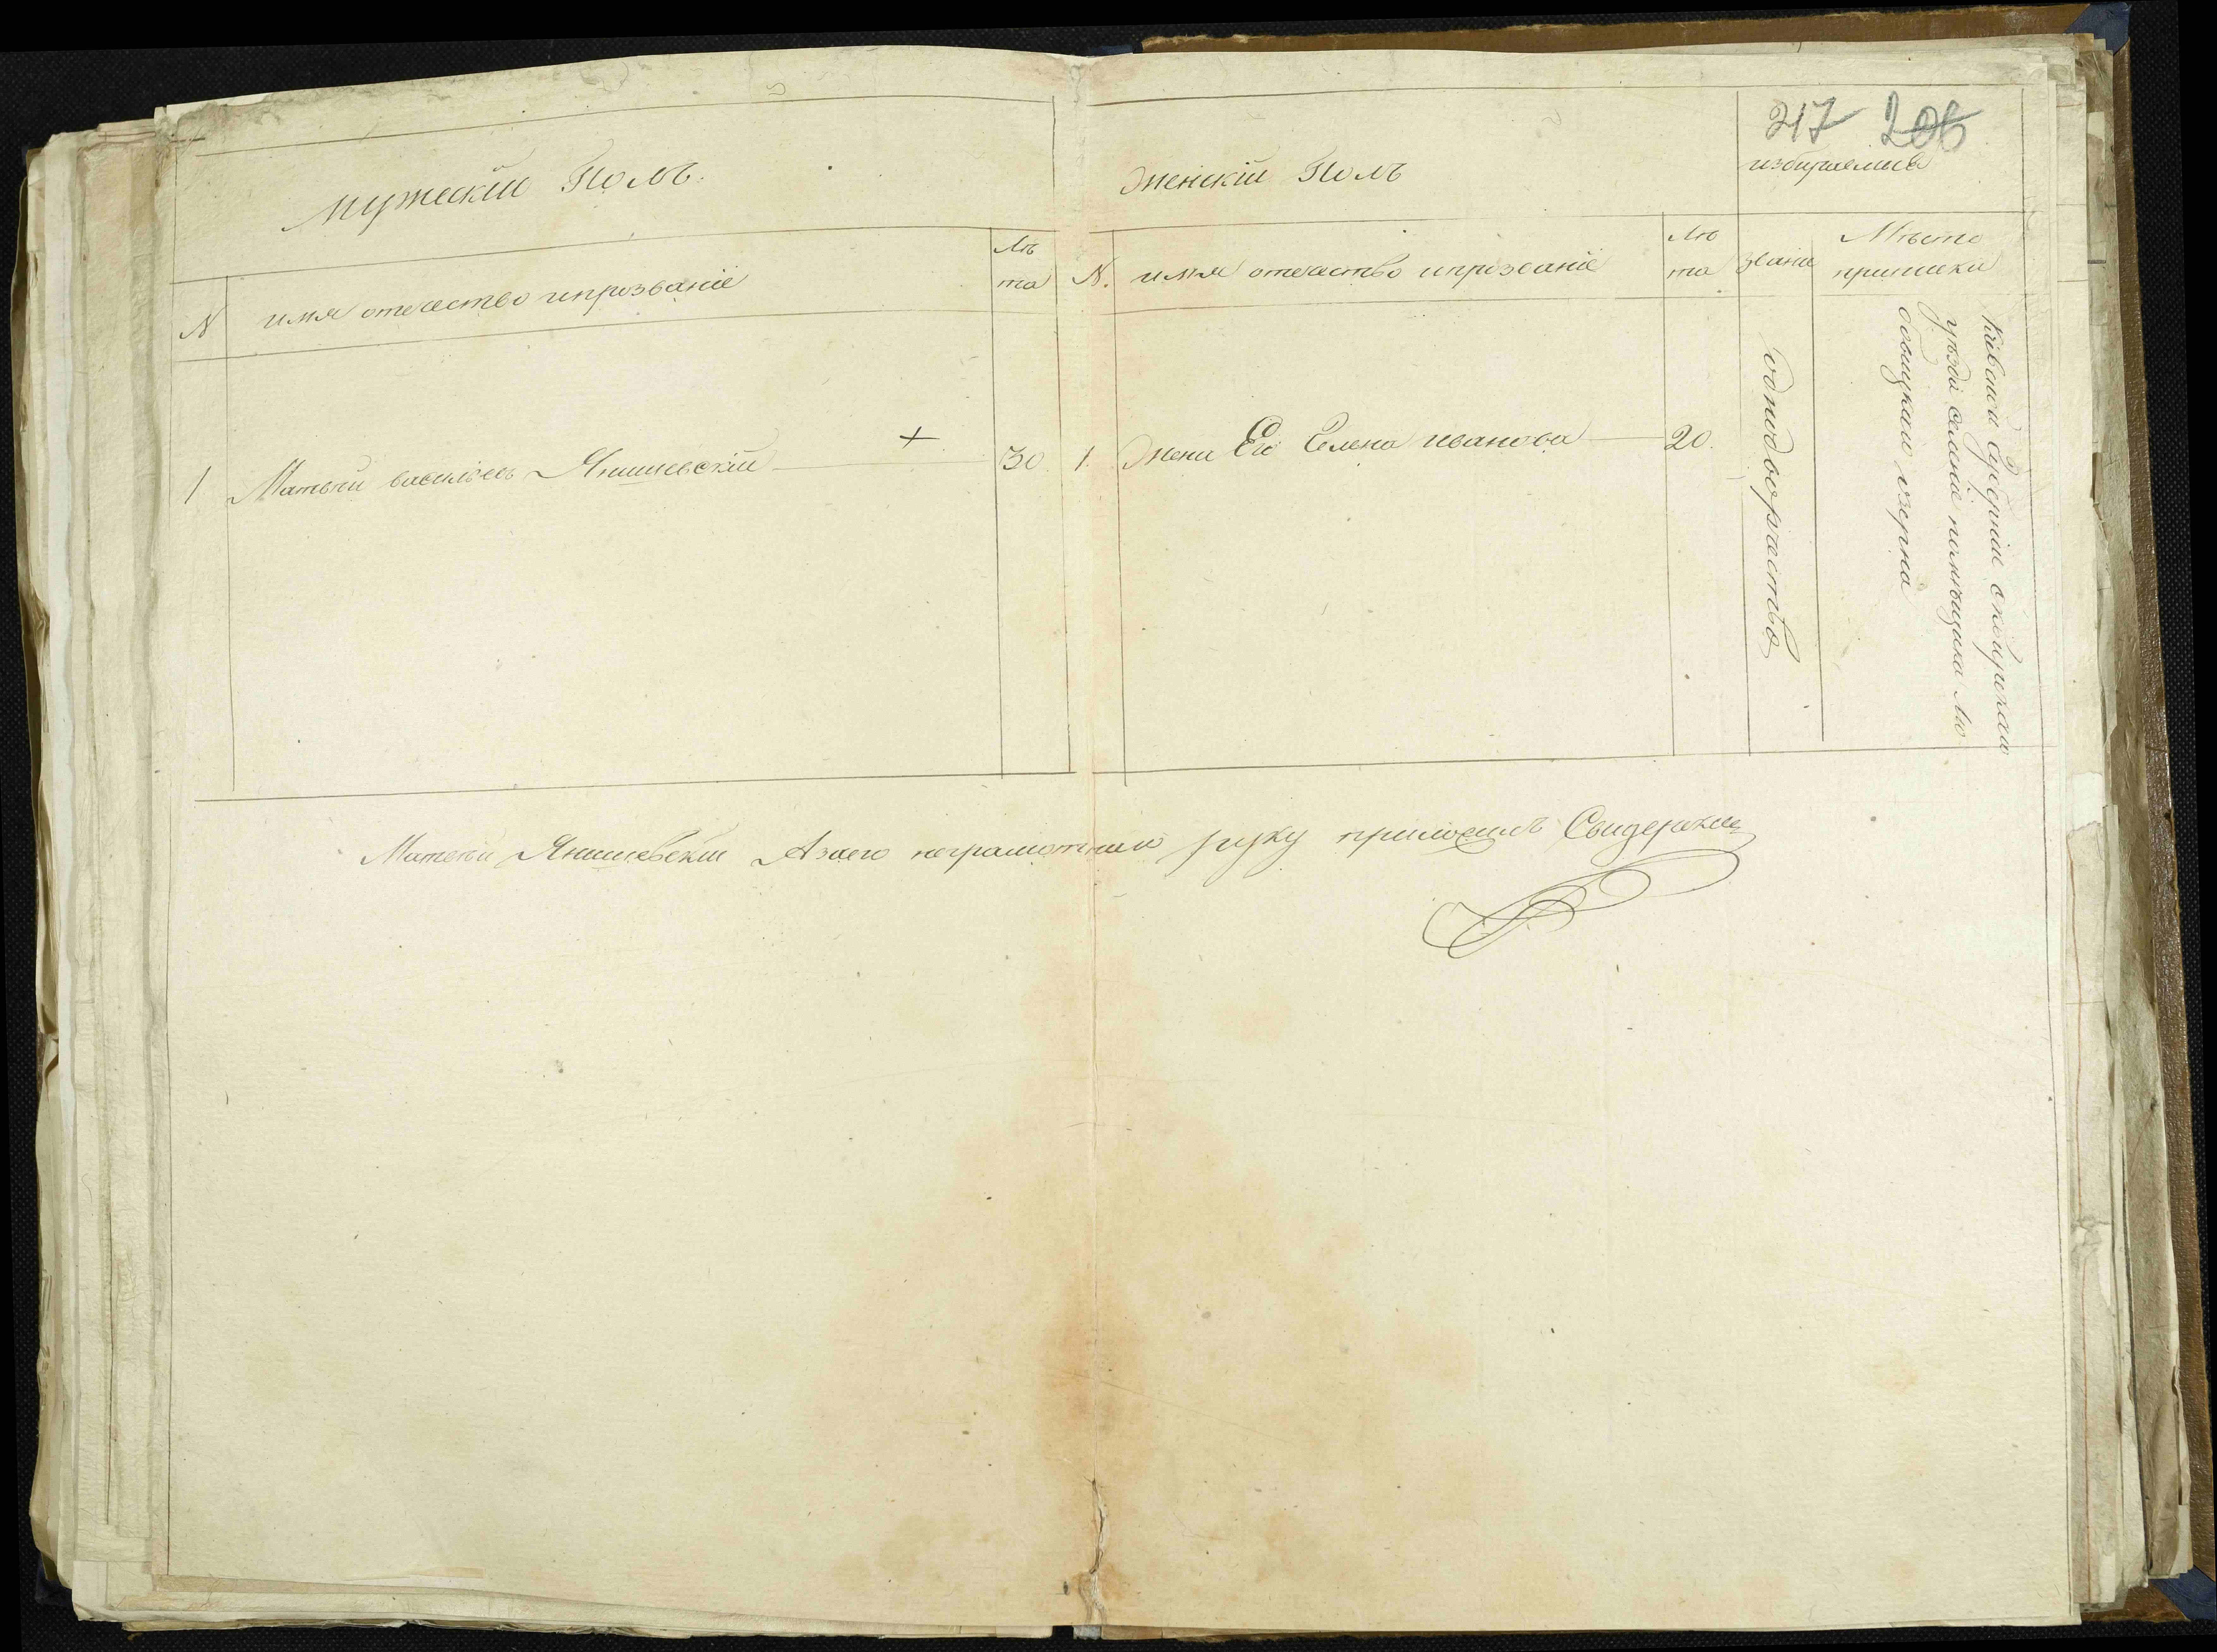 217 206
мужескій Полъ.
Женскій Полъ
избираемые
N имя отечество ипрозваніе
Лѣта
N. имя отечество ипрозваніе
Лѣта
званіе
Мѣсто приписки
1 Матвѣй васильевъ Янишевскій + 30.
1. Жена Его Елена иванова 20.
однодворчество
Кіевской Губерніи сквирскаго
уѣзда селеніе помѣщика
озерна
Матвѣй Янишевскій Азаего неграмотнаго руку приложилъ Свидерскій